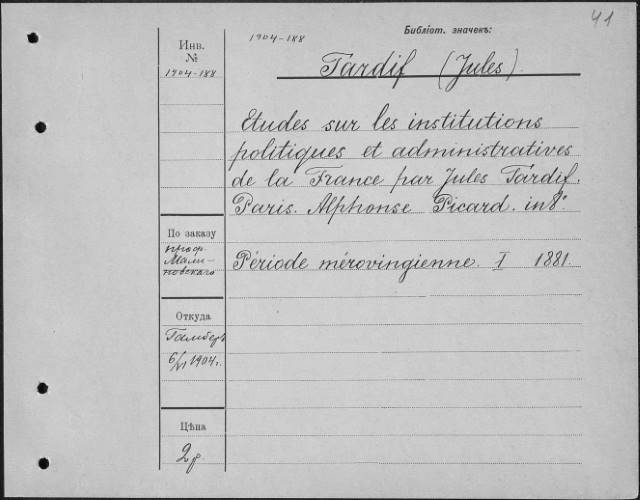 41
Библіот. значекъ:
1904-188
Инв.
№
1904-188
Tardif (Jules).
Etudes sur les institutions
politiques et administratives
de la France par Jules Tardif.
Paris. Alphonse Picard. in 8°.
По заказу
проф.
Мали-
новскаго
Période mérovingienne. I 1881.
Откуда
Гамберъ
6/VI 1904 г.
Цѣна
2 р.